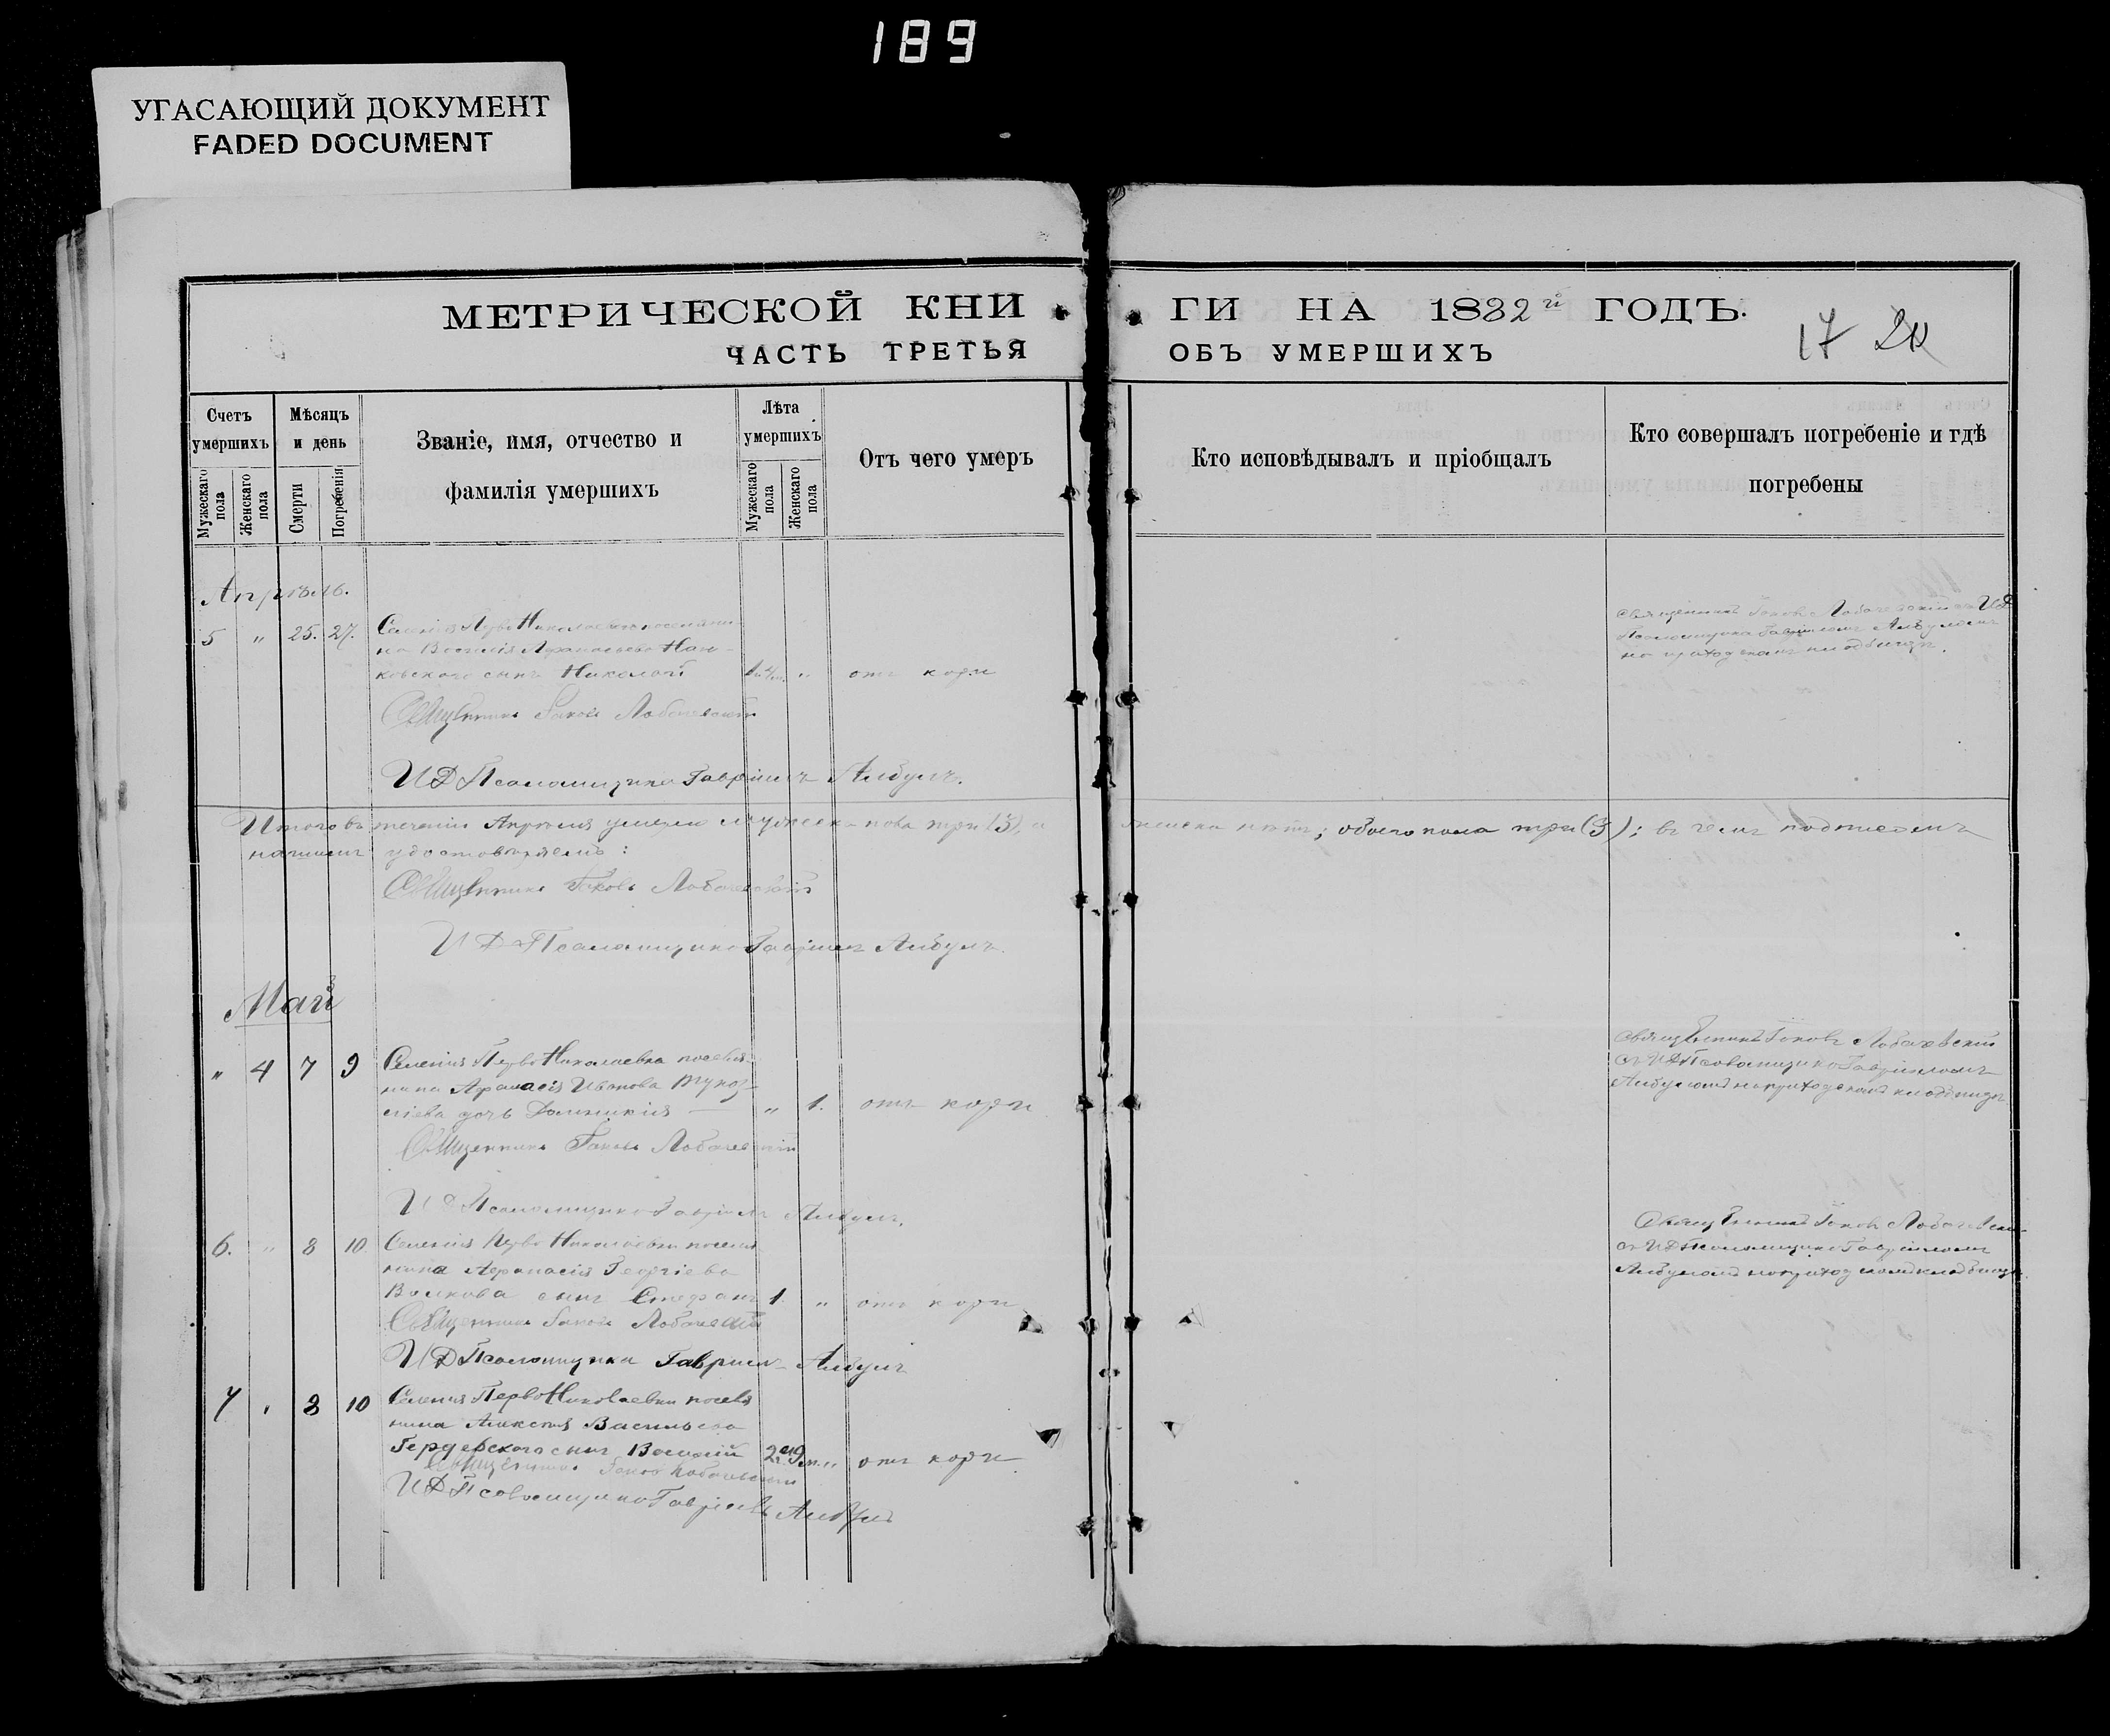 189
УГАСАЮЩИЙ ДОКУМЕНТ
FADED DOCUMENT
МЕТРИЧЕСКОЙ КНИ
ГИ НА 1882 й ГОДЪ.
ЧАСТЬ ТРЕТЬЯ
ОБЪ УМЕРШИХЪ
17 20
Счетъ умершихъ
Мужескаго пола
Женскаго пола
Мѣсяцъ и день
Смерти
Погребенія
Званіе, имя, отчество и
фамилія умершихъ
Лѣта умершихъ
Мужескаго пола
Женскаго пола
Отъ чего умеръ
Кто исповѣдывалъ и пріобщалъ
Кто совершалъ погребеніе и гдѣ
погребены
Апрѣль.
5 " 25. 27. Селенія Перво Николаевка поселяни
на Василія Афанасьева
сынъ Николай " отъ кори
Священникъ Іаковъ Лобачевскій
И Д Псаломщика Гавріилъ Албулъ.
Священникъ Іаковъ Лобачевскій И Д
Псаломщика Гавріиломъ Албуломъ
на приходскомъ кладбищѣ.
Итого въ теченіи Апрѣля умерло мужеска пола три (3), а женска нѣтъ; обоего пола три (3); въ чемъ подписомъ
нашимъ удостовѣряемъ:
Священникъ Іаковъ Лобачевскій
И Д Псаломщика Гавріилъ Албулъ.
Май
" 4 7 9 Селенія Перво Николаевка поселя-
нина Афанасія Иванова
дочь Домникія — " 1. отъ кори
Священникъ Іаковъ Лобачевскій
И Д Псаломщика Гавріилъ Албулъ.
Священникъ Іаковъ Лобачевскій
съ И Д Псаломщика Гавріиломъ
Албуломъ на приходскомъ кладбищѣ
6. " 8 10 Селенія Перво Николаевки поселя
нина Афанасія Георгіева
Волкова сынъ Стефанъ 1 " отъ кори
Священникъ Іаковъ Лобачевскій
И Д Псаломщика Гавріилъ Албулъ
Священникъ Іаковъ Лобачевскій
съ И Д Псаломщика Гавріиломъ
Албуломъ на приходскомъ кладбищѣ
7 " 8 10 Селенія Перво Николаевки поселя
нина Алексія Васильева
сынъ Василій " отъ кори
Священникъ Іаковъ Лобачевскій
И Д Псаломщика Гавріилъ Албулъ